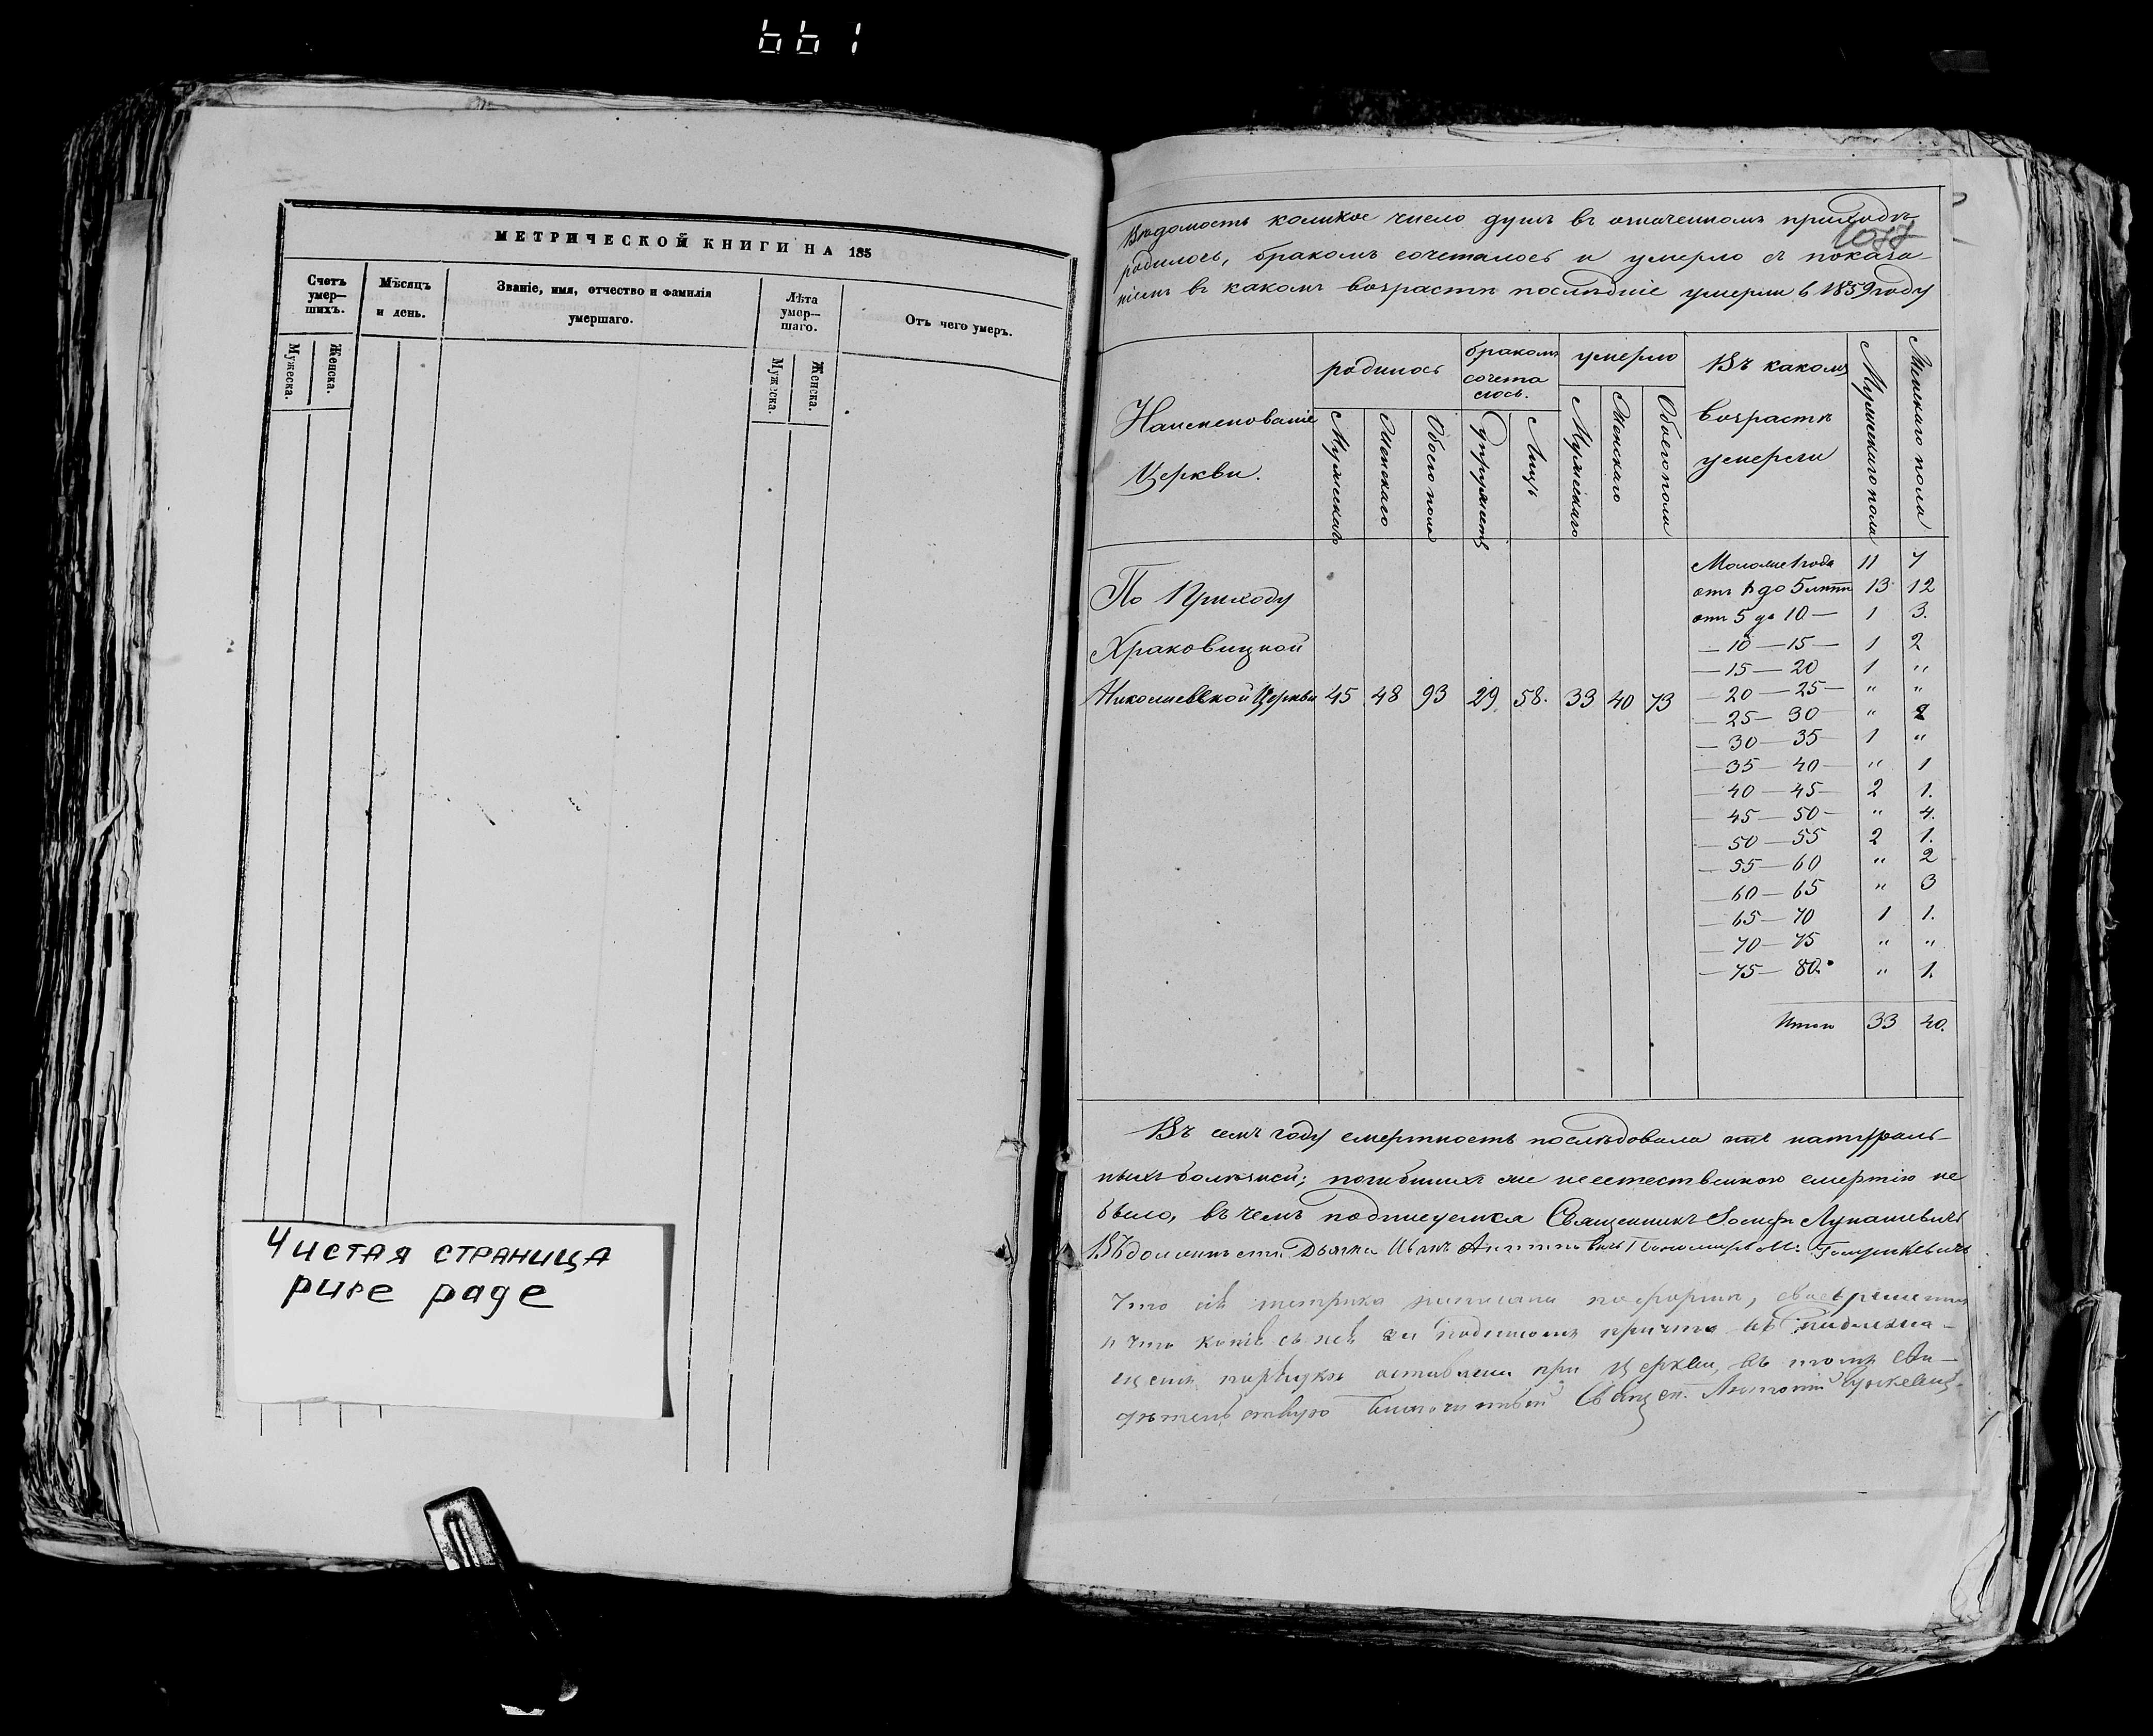 661
МЕТРИЧЕСКОЙ КНИГИ НА 185
Счетъ умер—шихъ.
Мѣсяцъ и день.
Званіе, имя, отчество и фамилія умершаго.
Лѣта умер—шаго.
Отъ чего умеръ.
Мужеска.
Женска.
Мужеска.
Женска.
Чистая страница
pure page
Вѣдомость коликое число душъ въ означенномъ приходѣ
1077
родилось, бракомъ сочеталось и умерло съ показа-
ніемъ въ какомъ возрастѣ послѣдніе умерли въ 1859 году
Наименованіе Церкви.
родилось
бракомъ сочета лось.
умерло
Въ какомъ возрастѣ умерли
Мужескаго пола
Женскаго пола
Мужескаго
Женскаго
Обоего пола
Супружествъ
Лицъ
Мужескаго
Женскаго
Обоего пола
Моложе 1 года 11 7
отъ 1 до 5 лѣтъ 13 12
отъ 5 до 10 — 1 3.
— 10 — 15 — 1 2
— 15 — 20 1 "
— 20 — 25 — " "
— 25 — 30 " 2
— 30 — 35 1 "
— 35 — 40 — " 1
— 40 — 45 — 2 1.
— 45 — 50 — " 4.
— 50 — 55 2 1.
— 55 — 60 " 2
— 60 — 65 " 3
— 65 — 70 1 1.
— 70 — 75 " "
— 75 — 80. " 1.
Итого 33 40.
По Приходу
Храковицкой
Николаевской Церкви 45 48 93 29 58. 33 40 73
Въ семъ году смертность послѣдовала отъ натураль-
ныхъ болѣзней; погибшихъ же неестественною смертію не
было, въ чемъ подписуемся Священникъ Іосифъ Лукашевичъ
Дьячка Иванъ
Что сія метрика написана по формѣ,
и что копія съ ней за подписомъ причта въ надлежа-
щемъ порядкѣ оставлена при церкви, въ томъ сви-
дѣтельствую Благочинный Священ. Антоній